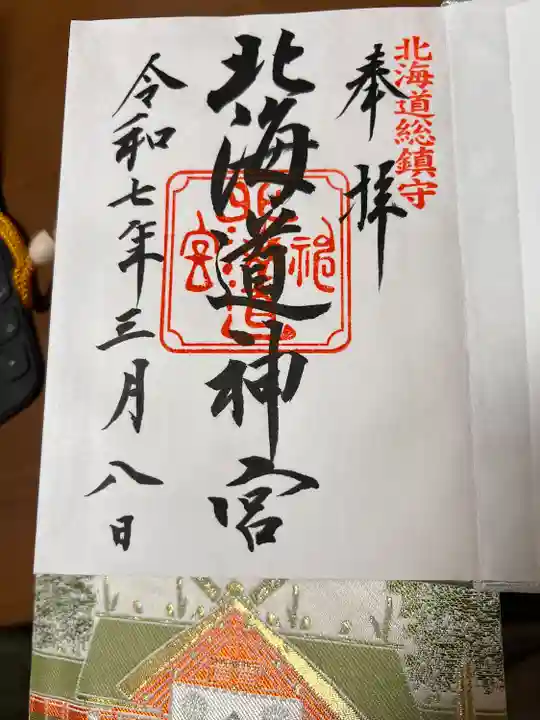 北海道総鎮守
奉拝
北海道神宮
令和七年三月八日